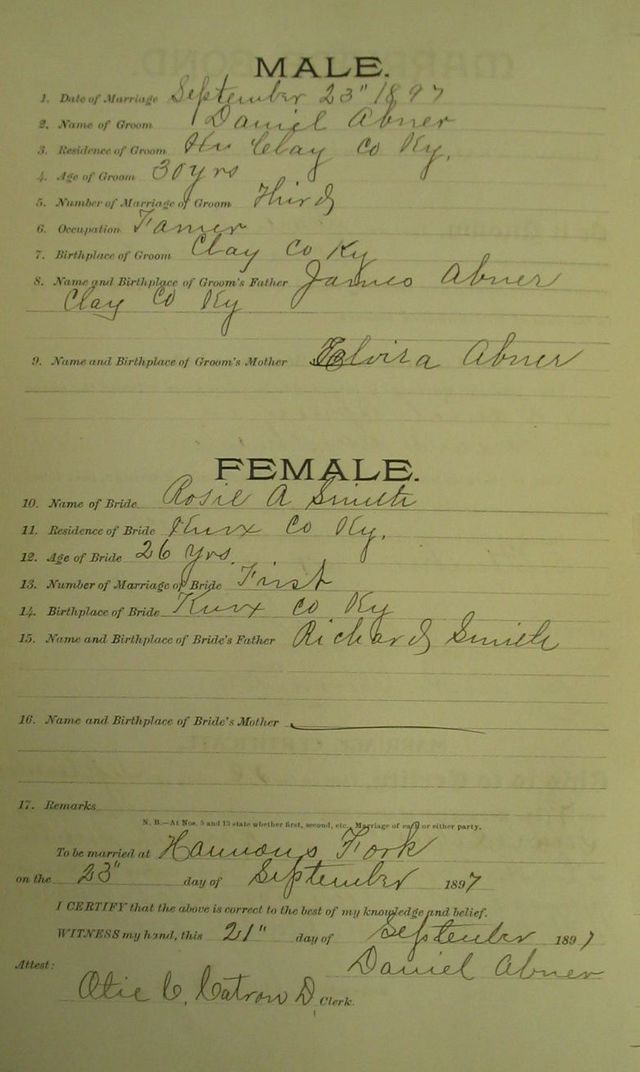 MALE.
1. Date of Marriage September 23" 1897
2. Name of Groom Daniel Abner
3. Residence of Groom Clay Co Ky,
4. Age of Groom 30 yrs
5. Number of Marriage of Groom Third
6. Occupation Famer
7. Birthplace of Groom Clay Co Ky
8. Name and Birthplace of Groom's Father James Abner
Clay Co Ky
9. Name and Birthplace of Groom's Mother Elvira Abner
FEMALE.
10. Name of Bride Rosie A Smith
11. Residence of Bride Knox Co Ky.
12. Age of Bride 26 yrs.
13. Number of Marriage of Bride First
14. Birthplace of Bride Knox Co Ky
15. Name and Birthplace of Bride's Father Richard Smith
16. Name and Birthplace of Bride's Mother
17. Remarks
N. B.—At Nos. 5 and 13 state whether first, second, etc., Marriage of each or either party.
To be married at Hammons Fork
on the 23" day of September 1897
I CERTIFY that the above is correct to the best of my knowledge and belief.
WITNESS my hand, this 21" day of September 1897
Daniel Abner
Attest:
Otie C. Catron D. Clerk.